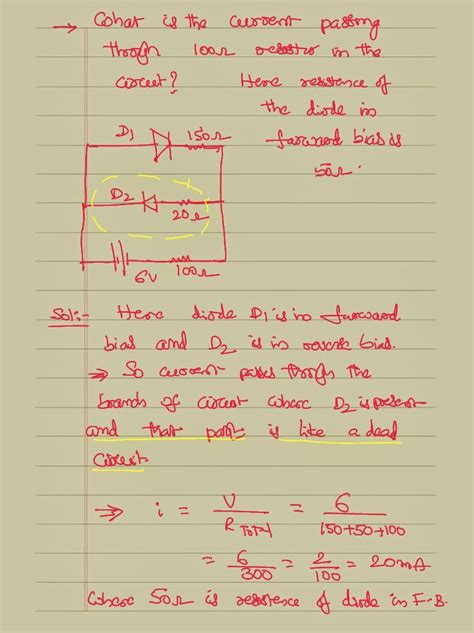 → What is the current passing
through 100Ω resistor in the
circuit? Here resistance of
the diode in
forward bias is
50Ω.
D1 150Ω
D2 20Ω
6V 100Ω
Sol:- Here diode D1 is in forward
bias and D2 is in reverse bias.
⇒ So current passes through the
branch of circuit where D2 is present
and that part is like a dead
circuit
⇒ i = V / R TOTAL = 6 / 150+50+100
= 6/300 = 2/100 = 20mA
Where 50Ω is resistence of diode in F-B.